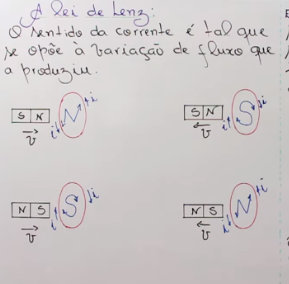 A Lei de Lenz:
O sentido da corrente é tal que
se opõe à variação de fluxo que
a produziu.
S N N i i
v
S N S i i
v
N S S i i
v
N S N i i
v